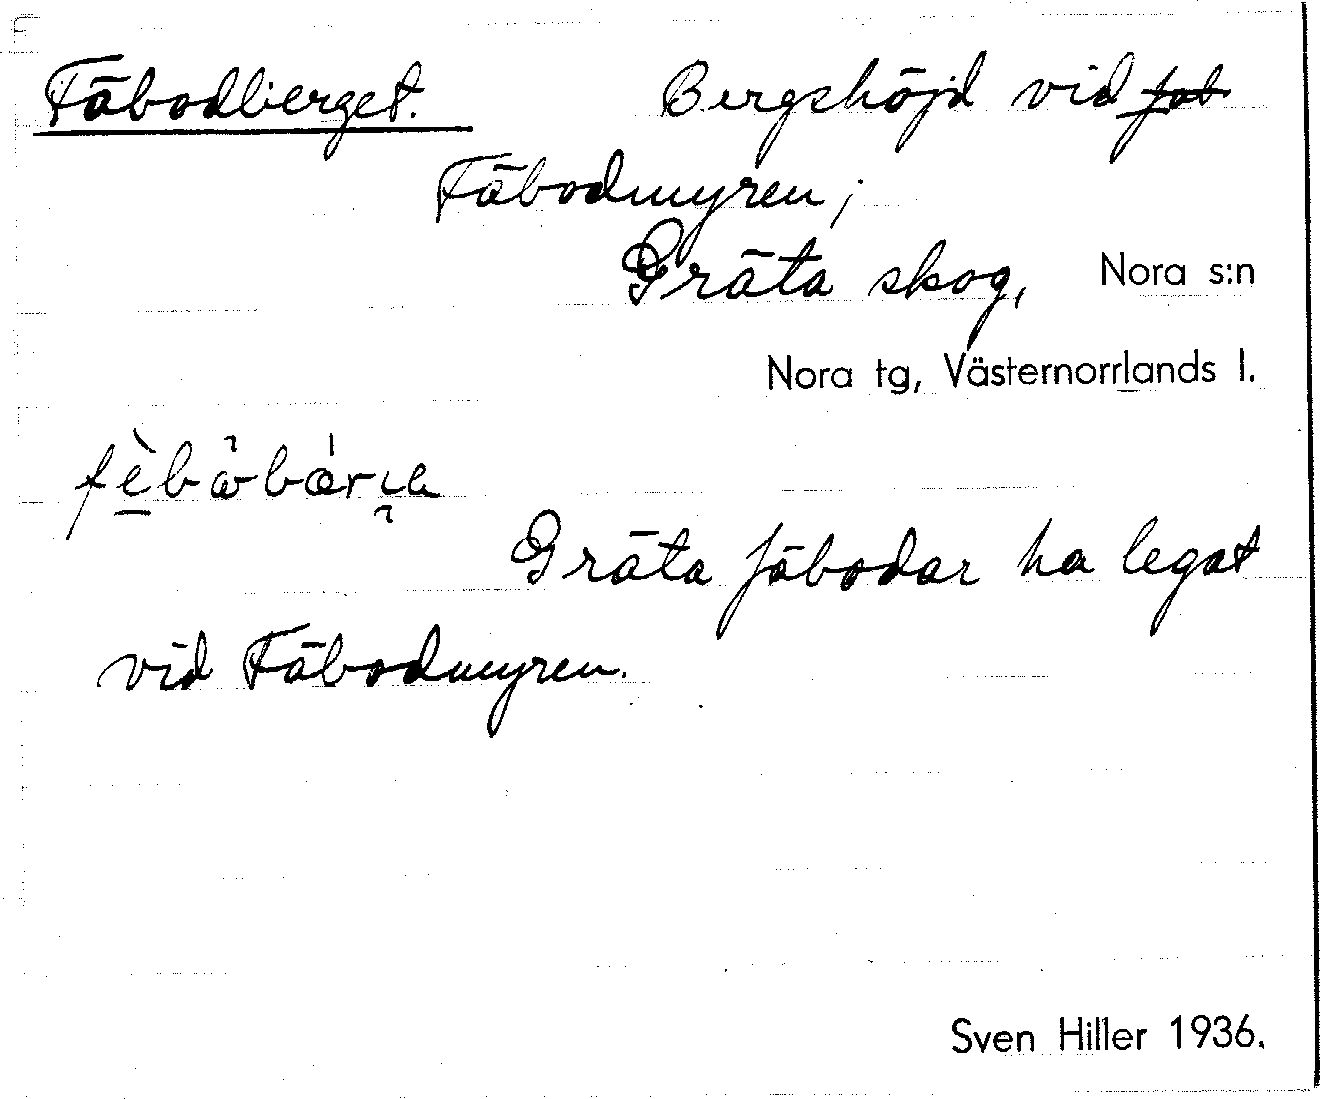 Fäbodberget. Bergshöjd vid ~~fäb~~
Fäbodmyren;
Gräta skog, Nora s:n
Nora tg, Västernorrlands l.
Gräta fäbodar ha legat
vid Fäbodmyren.
Sven Hiller 1936.